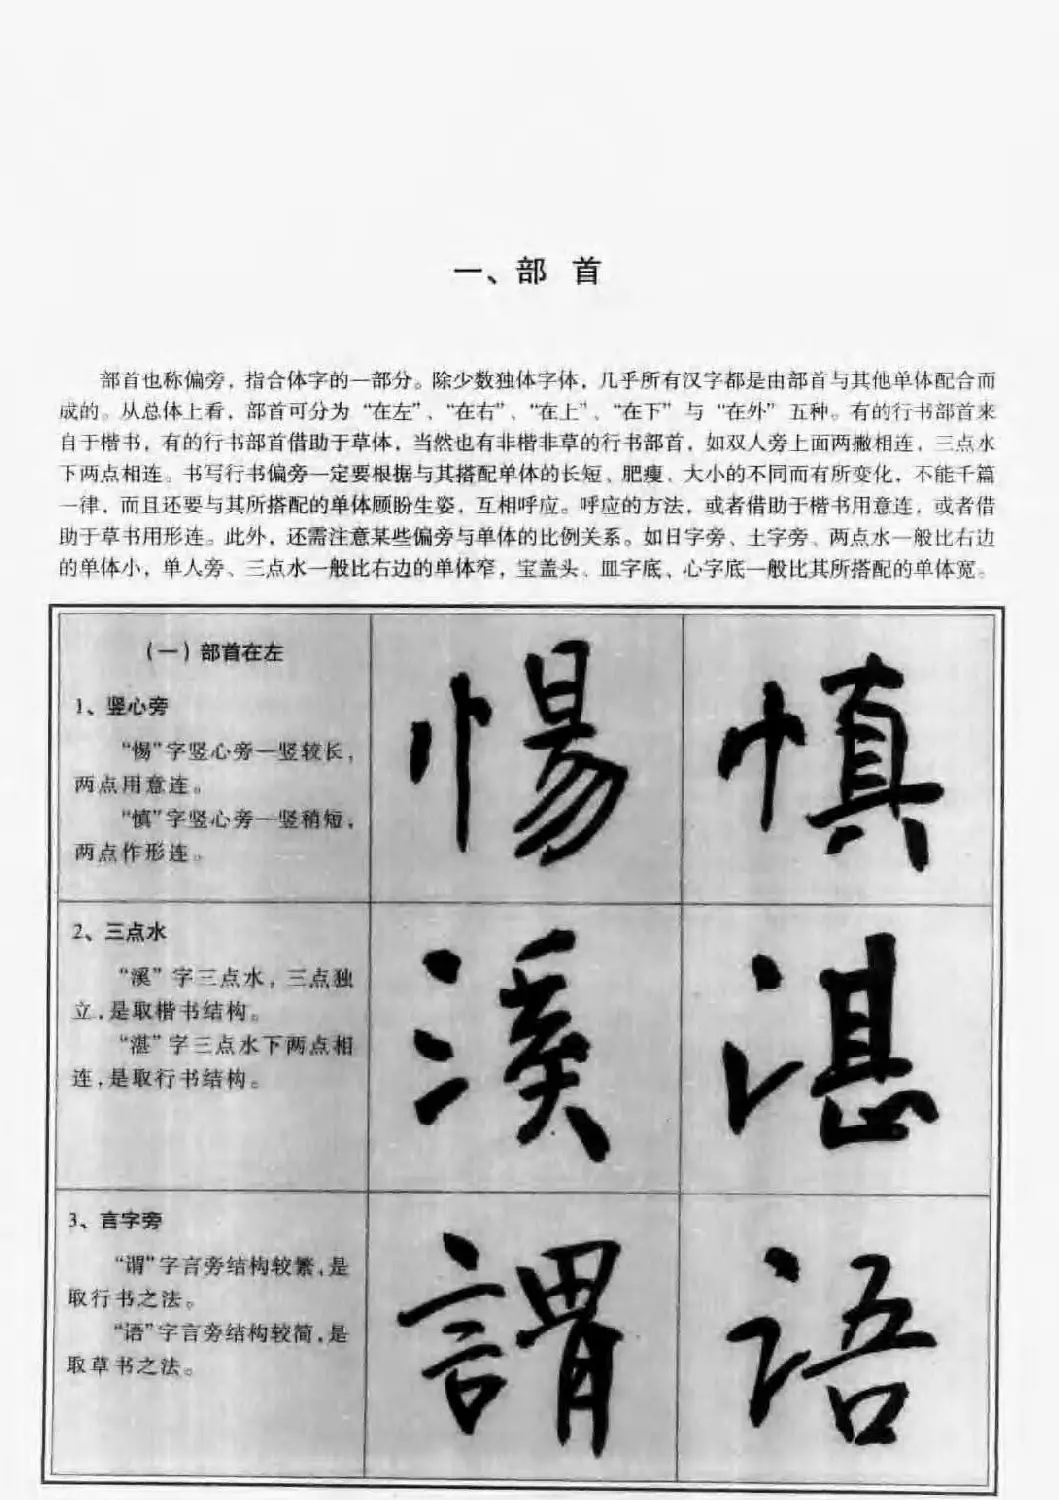 一、部 首
部首也称偏旁，指合体字的一部分。除少数独体字体，几乎所有汉字都是由部首与其他单体配合而
成的。从总体上看，部首可分为“在左”、“在右”、“在上”、“在下”与“在外”五种。有的行书部首来
自于楷书，有的行书部首借助于草体，当然也有非楷非草的行书部首，如双人旁上面两撇相连，三点水
下两点相连。书写行书偏旁一定要根据与其搭配单体的长短、肥瘦、大小的不同而有所变化，不能千篇
一律，而且还要与其所搭配的单体顾盼生姿，互相呼应。呼应的方法，或者借助于楷书用意连，或者借
助于草书用形连。此外，还需注意某些偏旁与单体的比例关系。如日字旁、土字旁、两点水一般比右边
的单体小，单人旁、三点水一般比右边的单体窄，宝盖头、皿字底、心字底一般比其所搭配的单体宽。
（一）部首在左
1、竖心旁
“惕”字竖心旁一竖较长，
两点用意连。
“慎”字竖心旁一竖稍短，
两点作形连。
惕 慎
2、三点水
“溪”字三点水，三点独
立，是取楷书结构。
“湛”字三点水下两点相
连，是取行书结构。
溪 湛
3、言字旁
“谓”字言旁结构较繁，是
取行书之法。
“语”字言旁结构较简，是
取草书之法。
謂 语